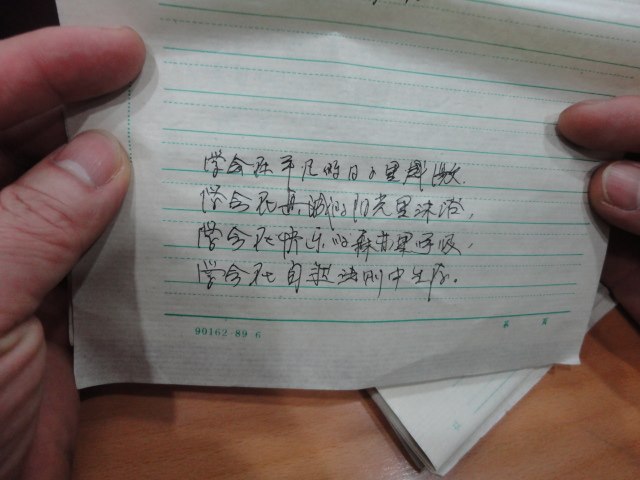 学会在平凡的日子里感激.
学会在真诚的阳光里沐浴,
学会在快乐的森林里呼吸,
学会在自然法则中生存.
90162·89 6
第 页